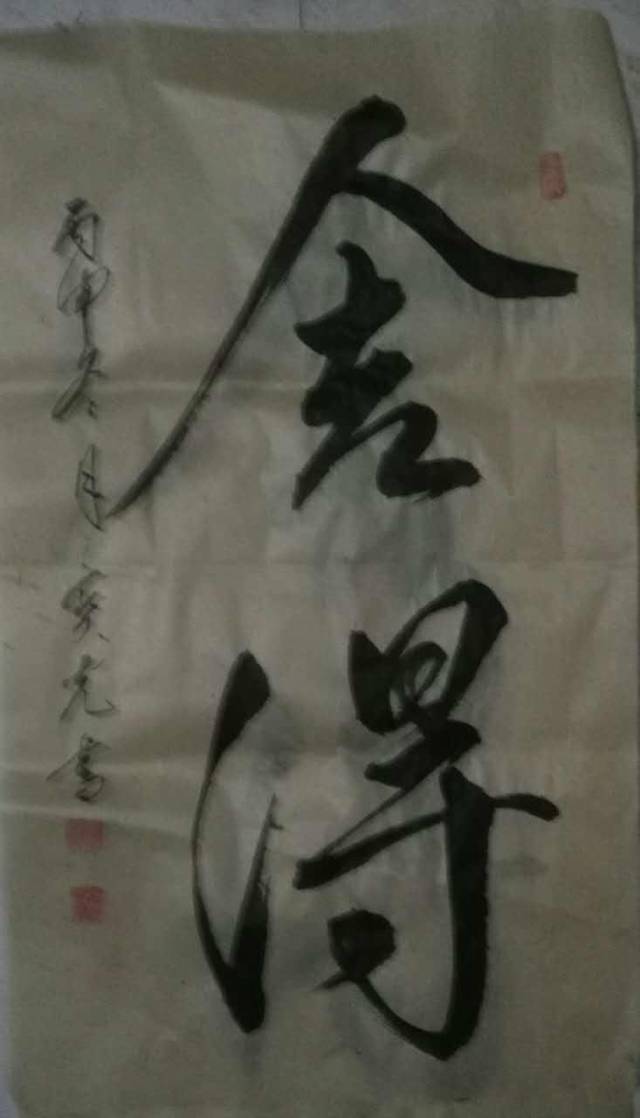 舍得
丙申冬月 光書